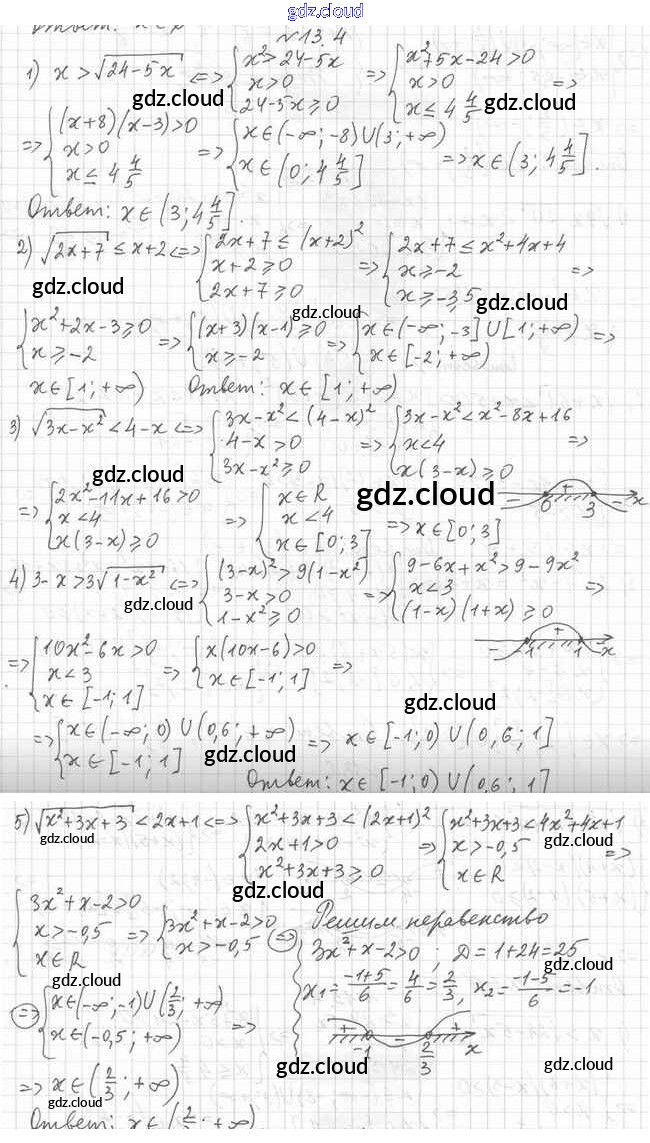 gdz.cloud
Ответ:
№13.4
1) x > √(24-5x) <=> { x² > 24-5x ; x > 0 ; 24-5x ≥ 0 => { x²+5x-24 > 0 ; x > 0 ; x ≤ 4 4/5 =>
gdz.cloud gdz.cloud
=> { (x+8)(x-3) > 0 ; x > 0 ; x ≤ 4 4/5 => { x ∈ (-∞; -8) U (3; +∞) ; x ∈ (0; 4 4/5] => x ∈ (3; 4 4/5].
Ответ: x ∈ (3; 4 4/5].
2) √(2x+7) ≤ x+2 <=> { 2x+7 ≤ (x+2)² ; x+2 ≥ 0 ; 2x+7 ≥ 0 => { 2x+7 ≤ x²+4x+4 ; x ≥ -2 ; x ≥ -3,5 =>
gdz.cloud gdz.cloud gdz.cloud
{ x²+2x-3 ≥ 0 ; x ≥ -2 => { (x+3)(x-1) ≥ 0 ; x ≥ -2 => { x ∈ (-∞; -3] U [1; +∞) ; x ∈ [-2; +∞) =>
x ∈ [1; +∞) Ответ: x ∈ [1; +∞)
3) √(3x-x²) < 4-x <=> { 3x-x² < (4-x)² ; 4-x > 0 ; 3x-x² ≥ 0 => { 3x-x² < x²-8x+16 ; x < 4 ; x(3-x) ≥ 0 =>
gdz.cloud gdz.cloud
=> { 2x²-11x+16 > 0 ; x < 4 ; x(3-x) ≥ 0 => { x ∈ R ; x < 4 ; x ∈ [0; 3] => x ∈ [0; 3]
- 0 + 3 - x
4) 3-x > 3√(1-x²) <=> { (3-x)² > 9(1-x²) ; 3-x > 0 ; 1-x² ≥ 0 => { 9-6x+x² > 9-9x² ; x < 3 ; (1-x)(1+x) ≥ 0 =>
gdz.cloud gdz.cloud
- -1 + 1 - x
=> { 10x²-6x > 0 ; x < 3 ; x ∈ [-1; 1] => { x(10x-6) > 0 ; x ∈ [-1; 1] =>
gdz.cloud
=> { x ∈ (-∞; 0) U (0,6; +∞) ; x ∈ [-1; 1] => x ∈ [-1; 0) U (0,6; 1]
gdz.cloud
Ответ: x ∈ [-1; 0) U (0,6; 1]
5) √(x²+3x+3) < 2x+1 <=> { x²+3x+3 < (2x+1)² ; 2x+1 > 0 ; x²+3x+3 ≥ 0 => { x²+3x+3 < 4x²+4x+1 ; x > -0,5 ; x ∈ R =>
gdz.cloud gdz.cloud gdz.cloud
{ 3x²+x-2 > 0 ; x > -0,5 ; x ∈ R => { 3x²+x-2 > 0 ; x > -0,5 <=>
Решим неравенство
3x²+x-2 > 0 ; D = 1+24 = 25
gdz.cloud gdz.cloud
x₁ = (-1+5)/6 = 4/6 = 2/3, x₂ = (-1-5)/6 = -1
=> { x ∈ (-∞; -1) U (2/3; +∞) ; x ∈ (-0,5; +∞) =>
+ -1 - 2/3 + x
gdz.cloud gdz.cloud
=> x ∈ (2/3; +∞)
gdz.cloud
Ответ: x ∈ (2/3; +∞)